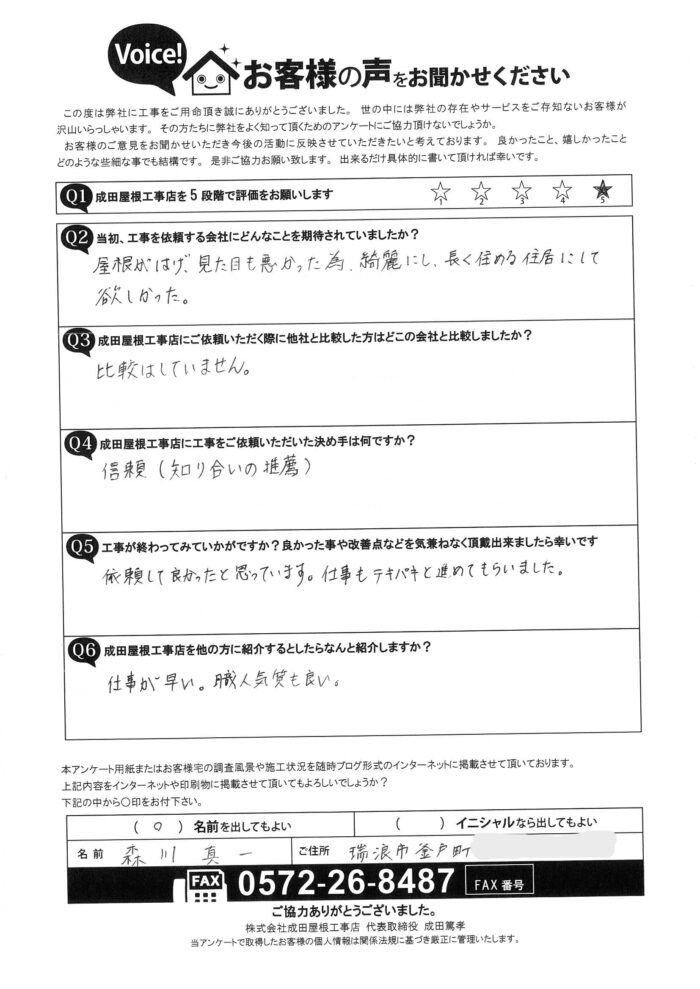 Voice!
お客様の声をお聞かせください
この度は弊社に工事をご用命頂き誠にありがとうございました。 世の中には弊社の存在やサービスをご存知ないお客様が
沢山いらっしゃいます。 その方たちに弊社をよく知って頂くためのアンケートにご協力頂けないでしょうか。
お客様のご意見をお聞かせいただき今後の活動に反映させていただきたいと考えております。 良かったこと、嬉しかったこと
どのような些細な事でも結構です。 是非ご協力お願い致します。 出来るだけ具体的に書いて頂ければ幸いです。
Q1 成田屋根工事店を5段階で評価をお願いします
1 2 3 4 5
Q2 当初、工事を依頼する会社にどんなことを期待されていましたか?
屋根がはげ、見た目も悪かった為、綺麗にし、長く住める住居にして
欲しかった。
Q3 成田屋根工事店にご依頼いただく際に他社と比較した方はどこの会社と比較しましたか?
比較はしていません。
Q4 成田屋根工事店に工事をご依頼いただいた決め手は何ですか?
信頼(知り合いの推薦)
Q5 工事が終わってみていかがですか?良かった事や改善点などを気兼ねなく頂戴出来ましたら幸いです
依頼して良かったと思っています。仕事もテキパキと進めてもらいました。
Q6 成田屋根工事店を他の方に紹介するとしたらなんと紹介しますか?
仕事が早い。職人気質も良い。
本アンケート用紙またはお客様宅の調査風景や施工状況を随時ブログ形式のインターネットに掲載させて頂いております。
上記内容をインターネットや印刷物に掲載させて頂いてもよろしいでしょうか?
下記の中から〇印をお付下さい。
( ○ ) 名前を出してもよい ( ) イニシャルなら出してもよい
名前 森川 真一 ご住所 瑞浪市釜戸町
FAX 0572-26-8487 FAX 番号
ご協力ありがとうございました。
株式会社成田屋根工事店 代表取締役 成田篤孝
当アンケートで取得したお客様の個人情報は関係法規に基づき厳正に管理いたします。